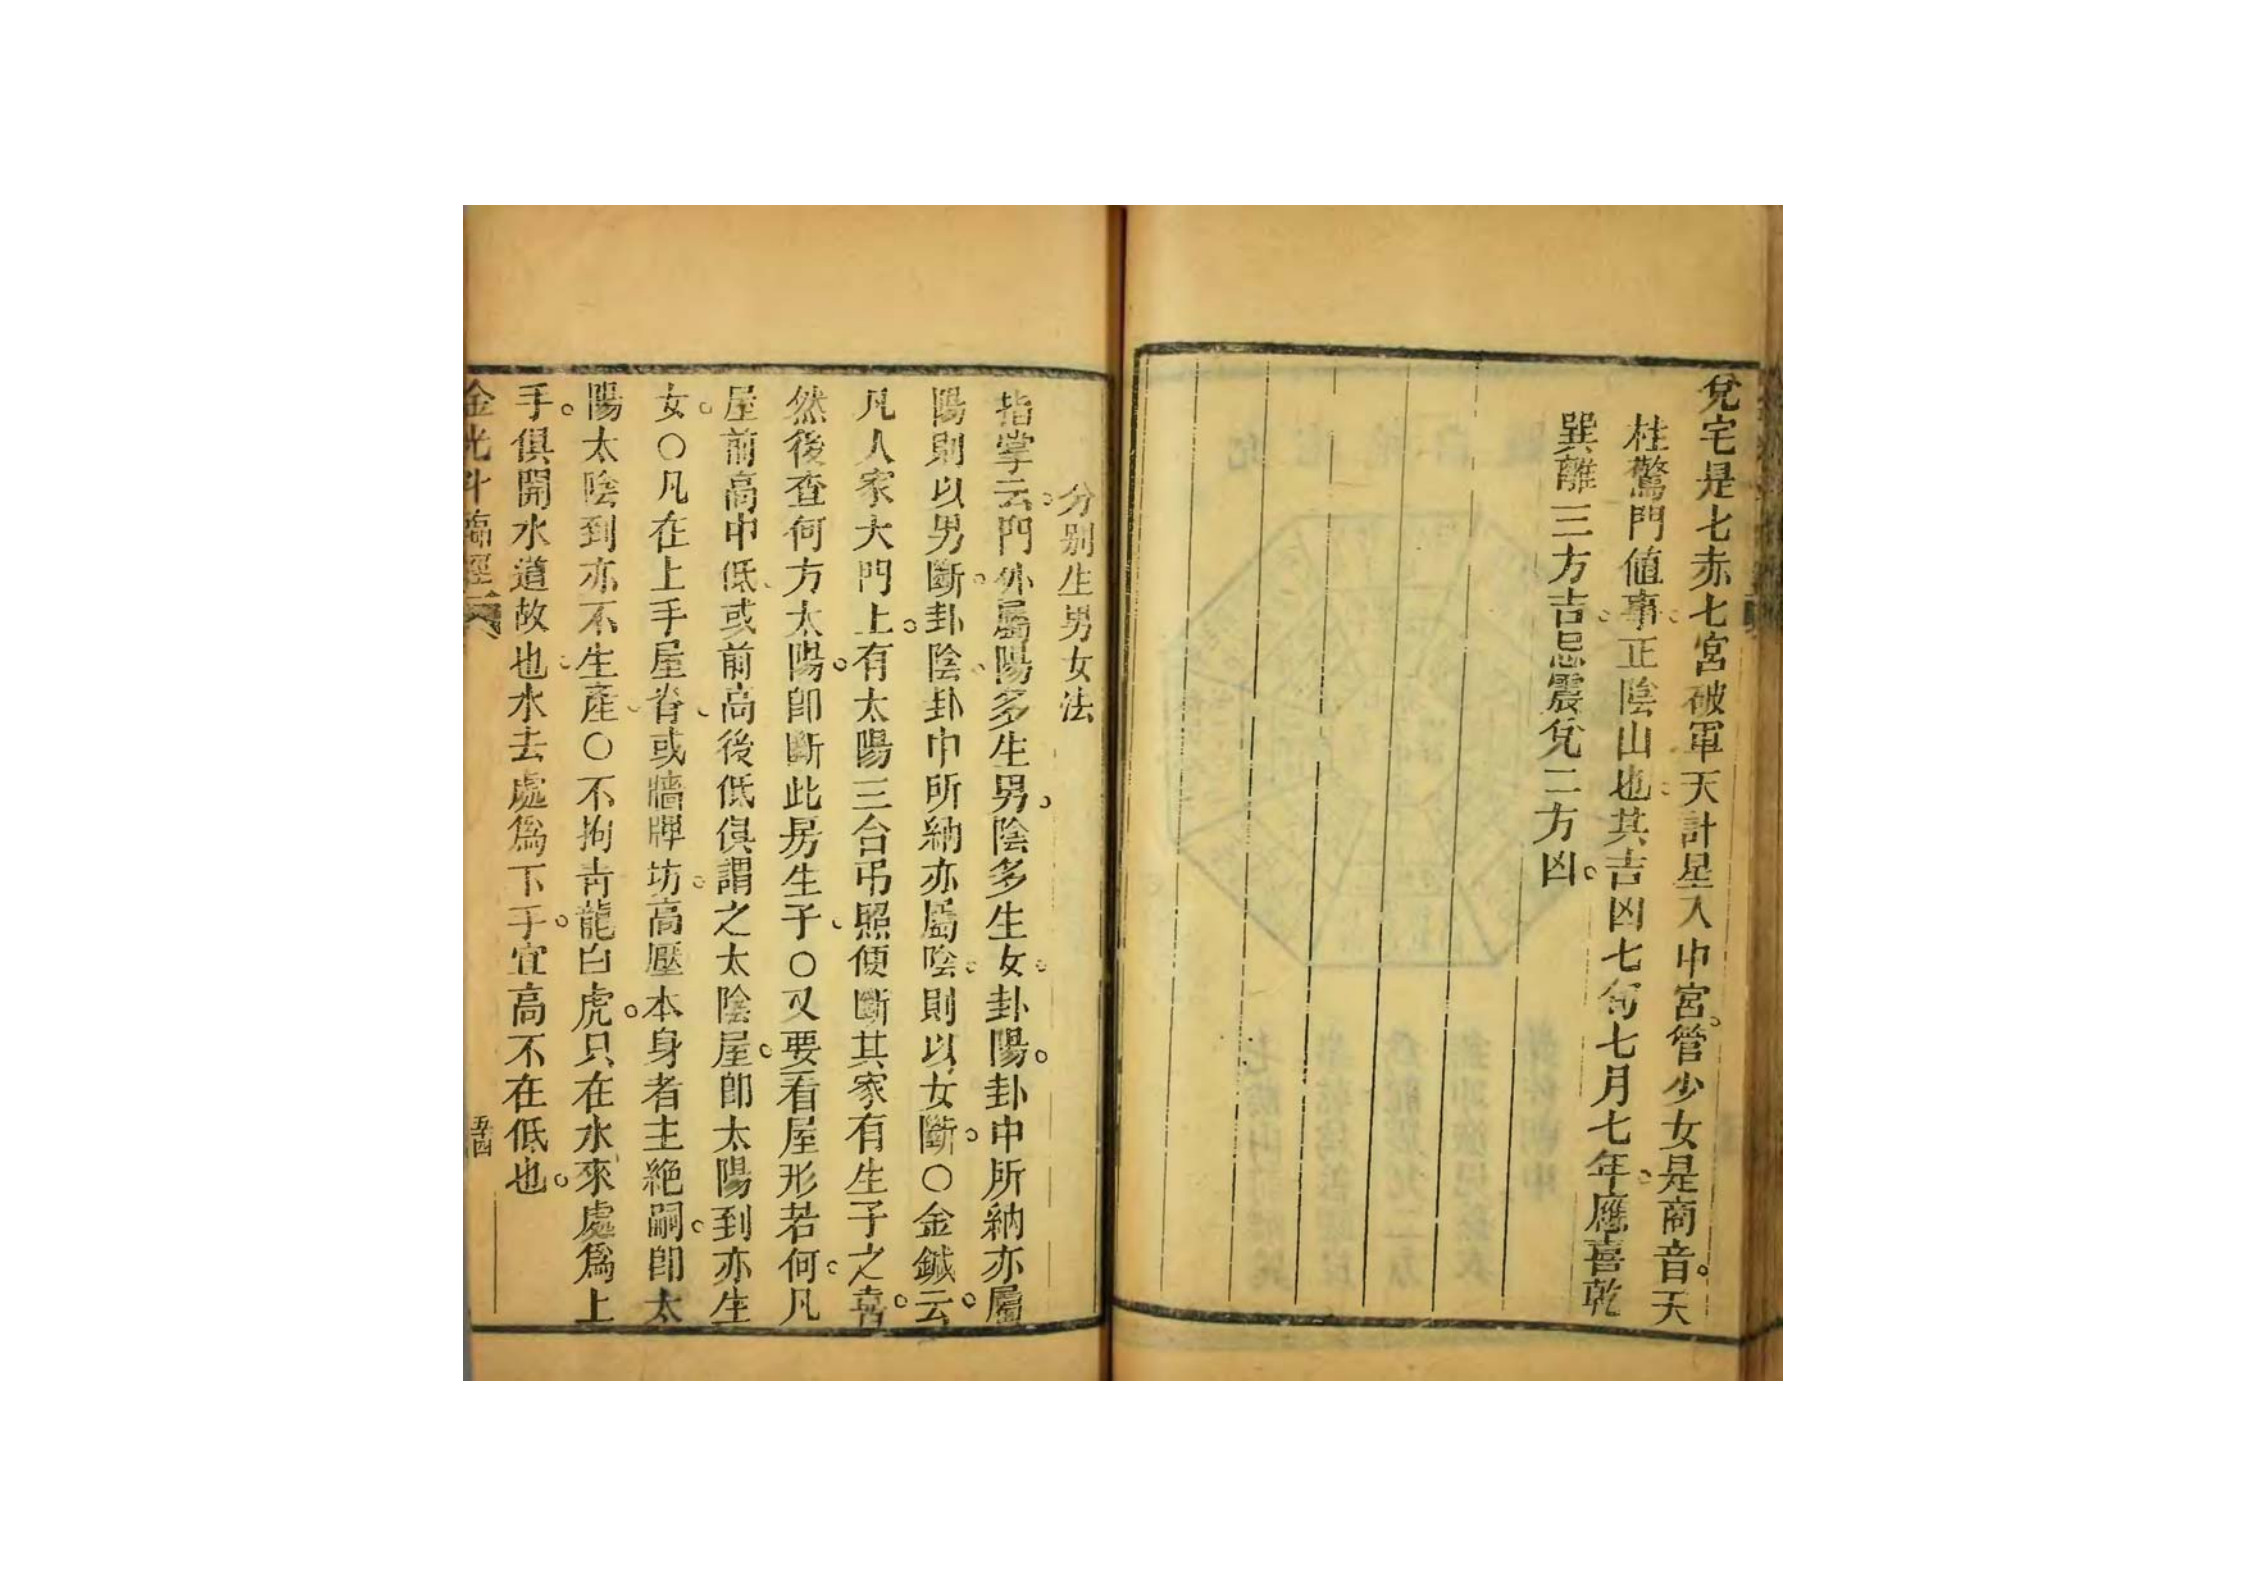 兌宅是七赤七宮破軍天計星入中宮。管少女是商音。天
柱驚門値事。正陰山也。其吉凶七旬七月七年。應喜乾
巽離三方吉。忌震兌二方凶。
分别生男女法
指掌云。門外屬陽多生男。陰多生女。卦陽。卦中所納亦屬
陽則以男斷。卦陰。卦中所納亦屬陰。則以女斷。〇金鍼云。
凡人家大門上。有太陽三台弔照便斷其家有生子之喜。
然後查何方太陽。卽斷此房生子、〇又要看屋形若何。凡
屋前高中低、或前高後低俱謂之太陰屋。卽太陽到亦生
女。〇凡在上手屋脊、或牆牌坊。高壓本身者主絶嗣。卽太
陽太陰到亦不生產、〇不拘青龍白虎。只在水來處爲上
手。俱開水道故也。水去處爲下手。宜高不在低也。
金光斗臨經
五十四